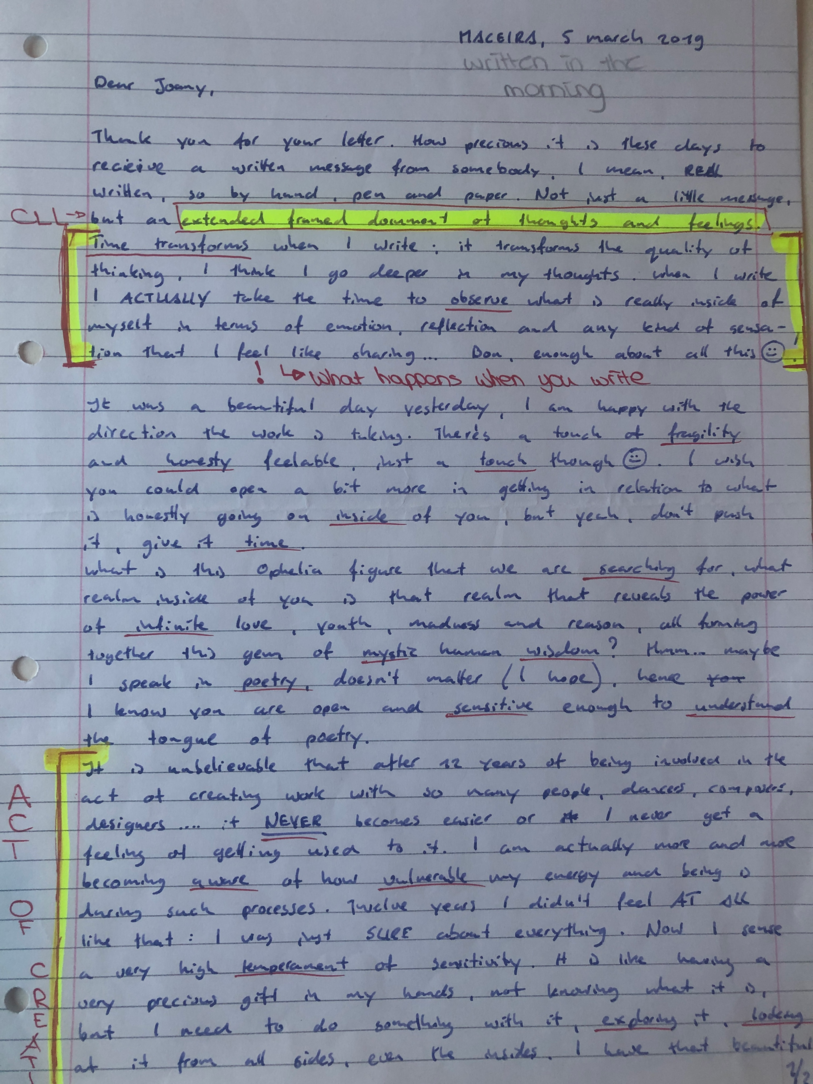 MACEIRA, 5 march 2019
written in the
morning
Dear Joany,
Thank you for your letter. How precious it is these days to
recieive a written message from somebody, I mean, REAL
written, so by hand, pen and paper. Not just a little message,
CLL → but an extended framed document of thoughts and feelings.
Time transforms when I write; it transforms the quality of
thinking, I think I go deeper in my thoughts. When I write
I ACTUALLY take the time to observe what is really inside of
myself in terms of emotion, reflection and any kind of sensa-
tion that I feel like sharing... Don, enough about all this ☺.
! ↳ what happens when you write
It was a beautiful day yesterday, I am happy with the
direction the work is taking. There's a touch of fragility
and honesty feelable, just a touch though ☺. I wish
you could open a bit more in getting in relation to what
is honestly going on inside of you, but yeah, don't push
it, give it time.
What is this Ophelia figure that we are searching for, what
realm inside of you is that realm that reveals the power
of infinite love, youth, madness and reason, all forming
together this gem of mystic human wisdom? Hmm... maybe
I speak in poetry, doesn't matter (I hope), hence you
I know you are open and sensitive enough to understand
the tongue of poetry.
It is unbelievable that after 12 years of being involved in the
act of creating work with so many people, dances, composers,
designers .... it NEVER becomes easier or I never get a
feeling of getting used to it. I am actually more and more
becoming aware of how vulnerable my energy and being is
during such processes. Twelve years I didn't feel AT ALL
like that: I was just SURE about everything. Now I sense
a very high temperament of sensitivity. It is like having a
very precious gift in my hands, not knowing what it is,
but I need to do something with it, exploring it, looking
at it from all sides, even the insides. I have that beautiful
1/2
ACT OF CREATI